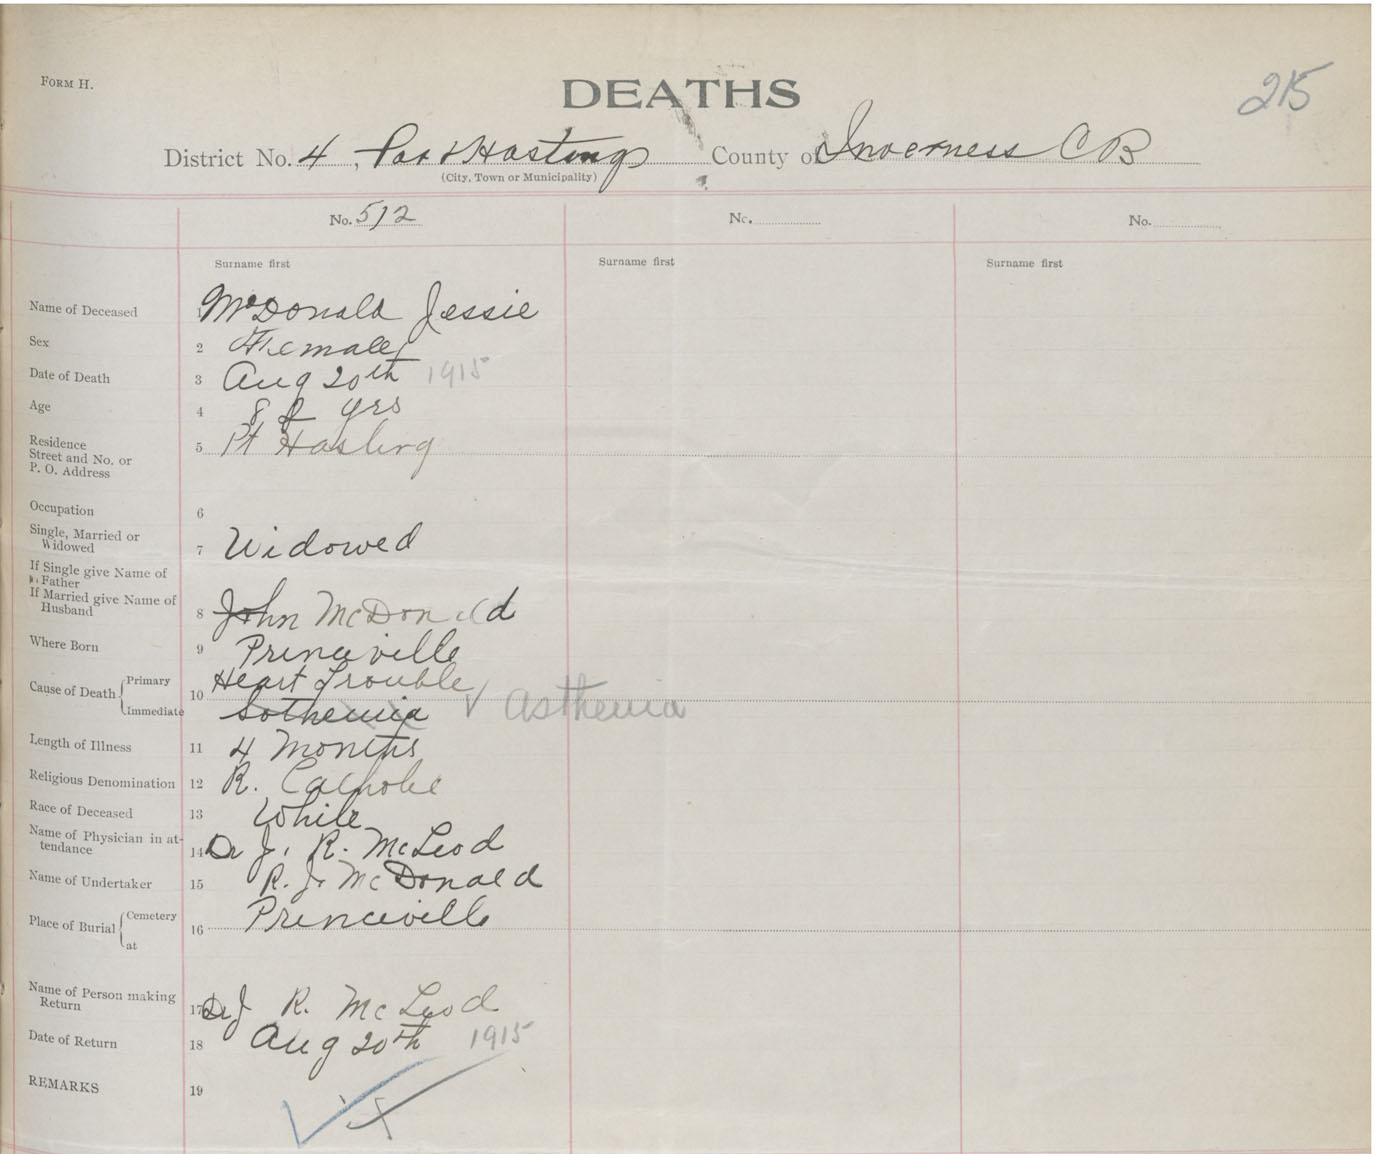 FORM H.
DEATHS
215
District No. 4, Port Hastings County of Inverness CB
(City, Town or Municipality)
No. 512 No. No.
Surname first Surname first Surname first
Name of Deceased 1 McDonald Jessie
Sex 2 Female
Date of Death 3 Aug 20th 1915
Age 4 yrs
Residence
Street and No. or
P. O. Address 5 Pt Hasting
Occupation 6
Single, Married or
Widowed 7 Widowed
If Single give Name of
Father
If Married give Name of
Husband 8 John McDonald
Where Born 9 Princeville
Cause of Death Primary 10 Heart Trouble
Immediate Sothenia √ Asthenia
Length of Illness 11 4 Months
Religious Denomination 12 R. Catholic
Race of Deceased 13 White
Name of Physician in at-
tendance 14 Dr J. R. McLeod
Name of Undertaker 15 R. J. McDonald
Place of Burial Cemetery 16 Princeville
at
Name of Person making
Return 17 Dr J R. McLeod
Date of Return 18 Aug 20th 1915
REMARKS 19